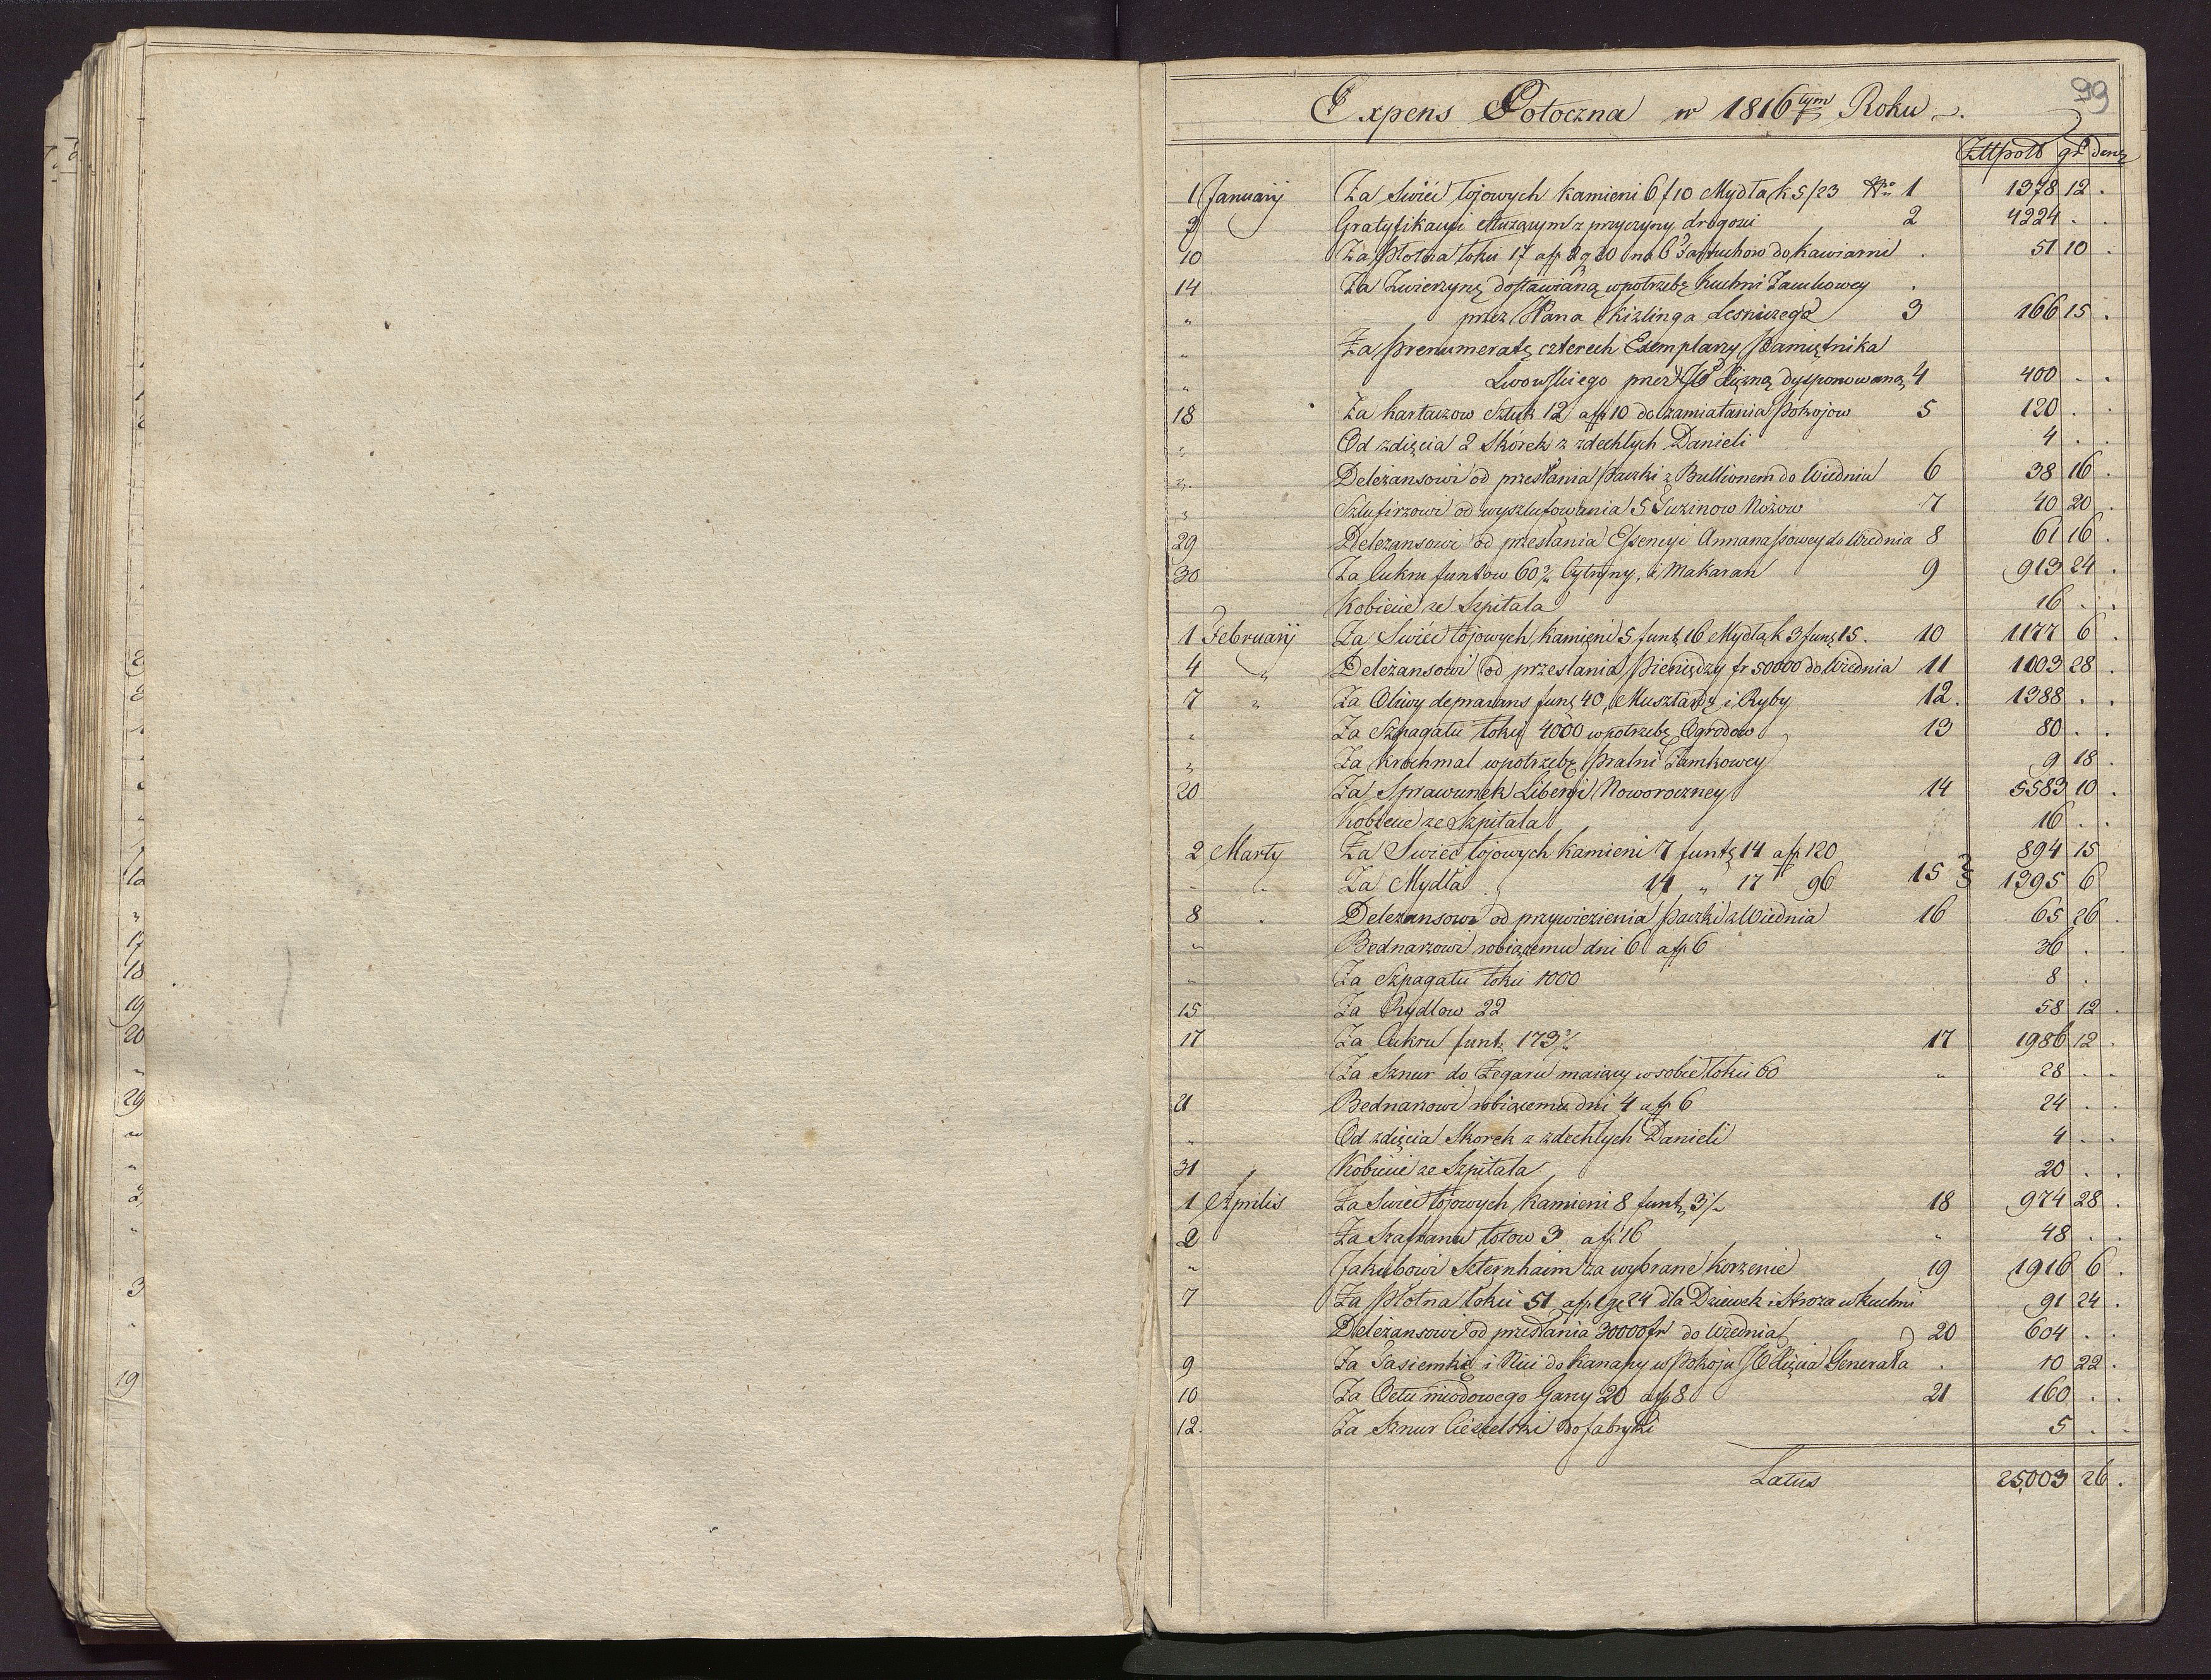 99
Expens Potoczna w 1816tym Roku.
Złłpols gr denz
1 Januarij Za Swiéc łojowych kamieni 6 f 10 Mydła k 5 f 23 Nro 1 1378 12 .
Gratyfikacyi służącym z przyczyny drogości 2 4224 . .
10 Za Płotna łokci 17 a fp 2 g 20 na 6 Fartuchow do kawiarni . 51 10 .
14 Za Zwierzynę dostawianą w potrzebę kuchni Zamkowey .
" przez Pana Kizlinga Lesniczego 3 166 15 .
" Za prenumeratę czterech Exemplarzy Pamiętnika
" Lwowskiego przez JO Xiężną dysponowaną 4 400 . .
18 Za kartaczow Sztuk 12 a fp 10 do zamiatania Pokojow 5 120 . .
" Od zdięcia 2 Skórek z zdechłych Danieli 4 . .
" Deleżansowi od przesłania paczki z Bullionem do Wiednia 6 38 16 .
" Szlufirzowi od wyszlufowania 5 Tuzinow Nożow 7 40 20 .
29 Deleżansowi od przesłania Essencyi Annanasowey do Wiednia 8 61 16 .
30 Za Cukru funtow 60 ½ Cytryny, i Makaran 9 913 24 .
Kobiecie ze Szpitala 16 . .
1 Februarij Za Swiéc łojowych kamieni 5 funt 16 Mydła k 3 funt 15. 10 1177 6 .
4 " Deleżansowi od przesłania Pieniędzy fr 50000 do Wiednia 11 1003 28 .
7 " Za Oliwy deprawans funt 40, Musztardę i Ryby 12. 1388 . .
" Za Szpagatu łokci 4000 w potrzebę Ogrodow 13 80 . .
" Za krochmal w potrzebę Pralni Zamkowey 9 18 .
20 Za Sprawunek Liberyi Noworoczney 14 5583 10 .
Kobiecie ze Szpitala 16 . .
2 Marty Za Swiec łojowych kamieni 7 funt 14 a fp 120 894 15
" " Za Mydła 14 " 17 96 15 1395 6
8 . Deleżansowi od przywiezienia Paczki z Wiednia 16 65 26 .
" Bednarzowi robiącemu dni 6 a fp 6 36 . .
" Za Szpagatu łokci 1000 8 .
15 Za Rydlow 22 58 12 .
17 Za Cukru funt 173 ½ 17 1986 12 .
Za Sznur do Zegaru maiący w sobie łokci 60 " 28 . .
21 Bednarzowi robiącemu dni 4 a fp 6 24 . .
" Od zdięcia Skorek z zdechłych Danieli 4 . .
31 Kobiecie ze Szpitala 20 . .
1 Aprilis Za Swiec łojowych kamieni 8 funt 3 ½ 18 974 28 .
2 Za Szafranu łotow 3 a fp 16 " 48 . .
" Jakubowi Szternhaim za wybrane korzenie 19 1916 6 .
7 Za Płotna łokci 51 a fp 1 gr 24 dla Dziewek i Stroza w kuchni 91 24 .
Deleżansowi od przesłania 30000 fr do Wiednia 20 604 . .
9 Za Tasiemki i Nici do Kanapy w Pokoju JO Xięcia Generała . 10 22 .
10 Za Octu miodowego Garcy 20 a fp 8 21 160 . .
12. Za Sznur Ciesielski do fabryki 5 . .
Latus 25,003 26 .